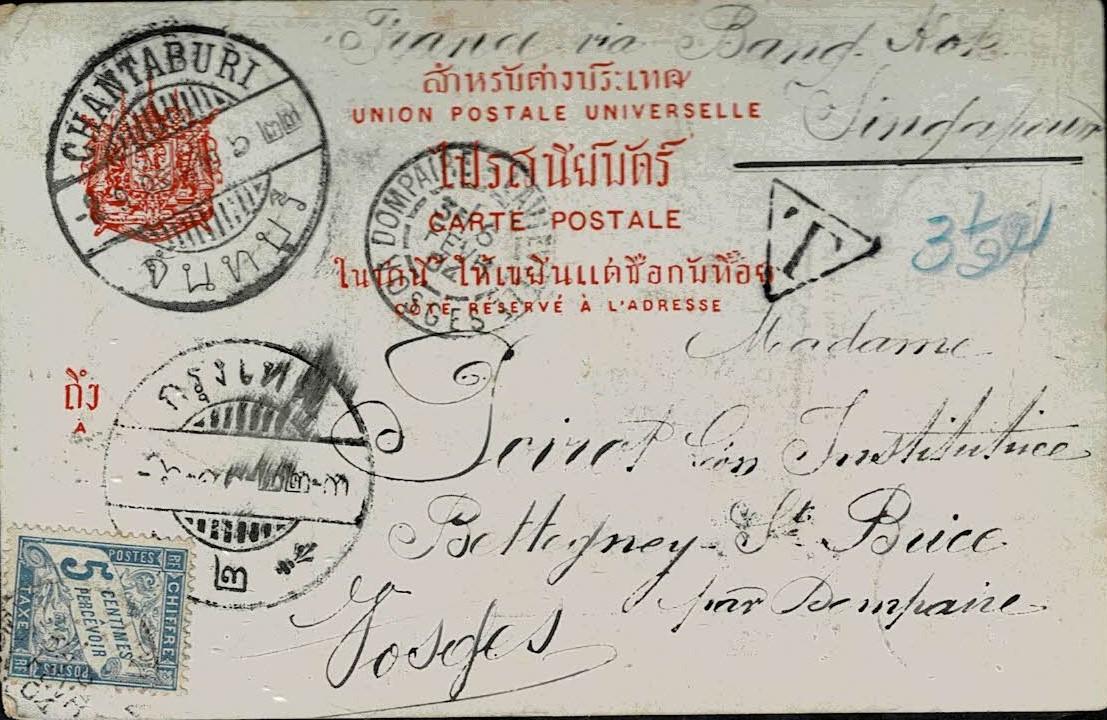 France via Bang-Kok
Singapour
สำหรับต่างประเทศ
UNION POSTALE UNIVERSELLE
ไปรสนียบัตร์
CARTE POSTALE
ให้เขียนแต่ชื่อกับที่อยู่
CÔTÉ RÉSERVÉ À L'ADRESSE
CHANTABURI
จันทบุรี
DOMPAIRE
T
3½
ถึง
A
กรุงเทพ
๒
Madame
Poirot Institutrice
Bettegney-St Brice
par Dompaire
Vosges
POSTES
RF CHIFFRE
5
CENTIMES
PERCEVOIR
TAXE RF
POSTES